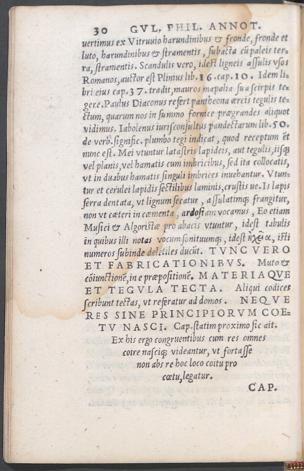 30 GVL. PHIL. ANNOT.
uertimus ex Vitruuio harundinibus & fronde, fronde et
luto, harundinibus & stramentis, subacta cū paleis ter-
ra, stramentis. Scandulis vero, idest ligneis assulis vsos
Romanos, autor est Plinius lib. 16. cap. 10. Idem li-
bri eius cap. 37. tradit, mauros mapalia sua scirpis te-
gere. Paulus Diaconus refert pantheona æreis tegulis te-
ctum, quarum nos in summo fornice prægrandes aliquot
vidimus. Iabolenus iurisconsultus pandectarum lib. 50.
de verb. signific. plumbo tegi indicat, quod receptum et
nunc est. Mei vtuntur latastris lapideis, aut tegulis, iisq;
vel planis, vel hamatis cum imbricibus, sed ita collocatis,
vt in duabus hamatis singuli imbrices inuehantur. Vtun-
tur et cerulei lapidis sectilibus laminis, crustis ue. Is lapis
serra dentata, vt lignum secatur, assulatimq; frangitur,
non vt cæteri in cæmenta, ardosiam vocamus, Eo etiam
Musici & Algoristæ pro abacis vtuntur, idest tabulis
in quibus illi notas vocum sonituumq;, idest isti
numeros subinde delebiles ducūt. TVNC VERO
ET FABRICATIONIBVS. Muto &
cōiunctionē, in e præpositionē. MATERIAQVE
ET TEGVLA TECTA. Aliqui codices
scribunt tectas, vt referatur ad domos. NEQVE
RES SINE PRINCIPIORVM COE-
TV NASCI. Cap. statim proximo sic ait.
Ex his ergo congruentibus cum res omnes
coire nasciq; videantur, vt fortasse
non abs re hoc loco coitu pro
cœtu, legatur.
CAP.